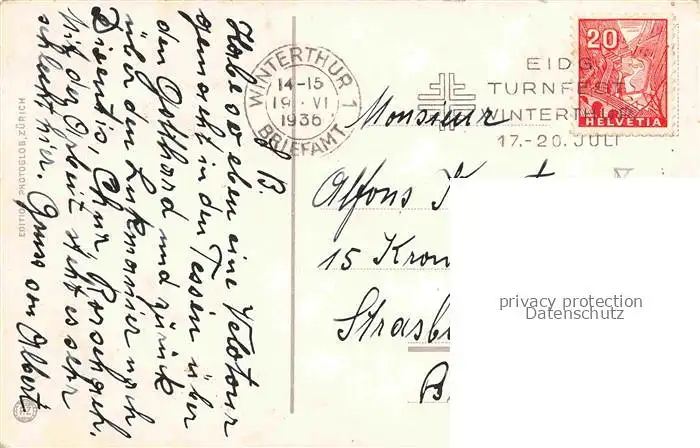 L. B.
Habe so eben eine Velotour
gemacht in den Tessin über
den Gotthard und zurück
über den Lukmanier nach
Disentis, Chur, Rorschach.
Mit der Arbeit steht es sehr
schlecht hier. Gruss von Albert
EDITION PHOTOGLOB, ZÜRICH
WINTERTHUR 1
14-15
19. VI
1936
BRIEFAMT
EIDG.
TURNFEST
WINTERTHUR
17.-20. JULI
20
HELVETIA
Monsieur
Alfons
15
Strasb
privacy protection
Datenschutz